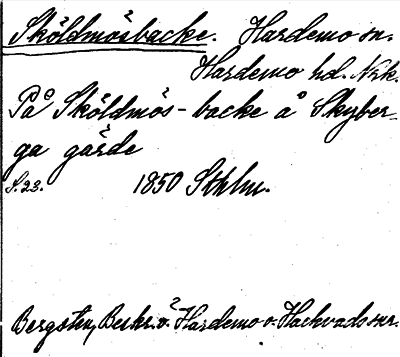 Sköldmösbacke. Hardemo sn.
Hardemo hd. Nrk.
På Sköldmös-backe å Skyber-
ga gärde
S. 23. 1850 Sthlm.
Bergsten, Beskr. ö. Hardemo o. Hackvads snr.